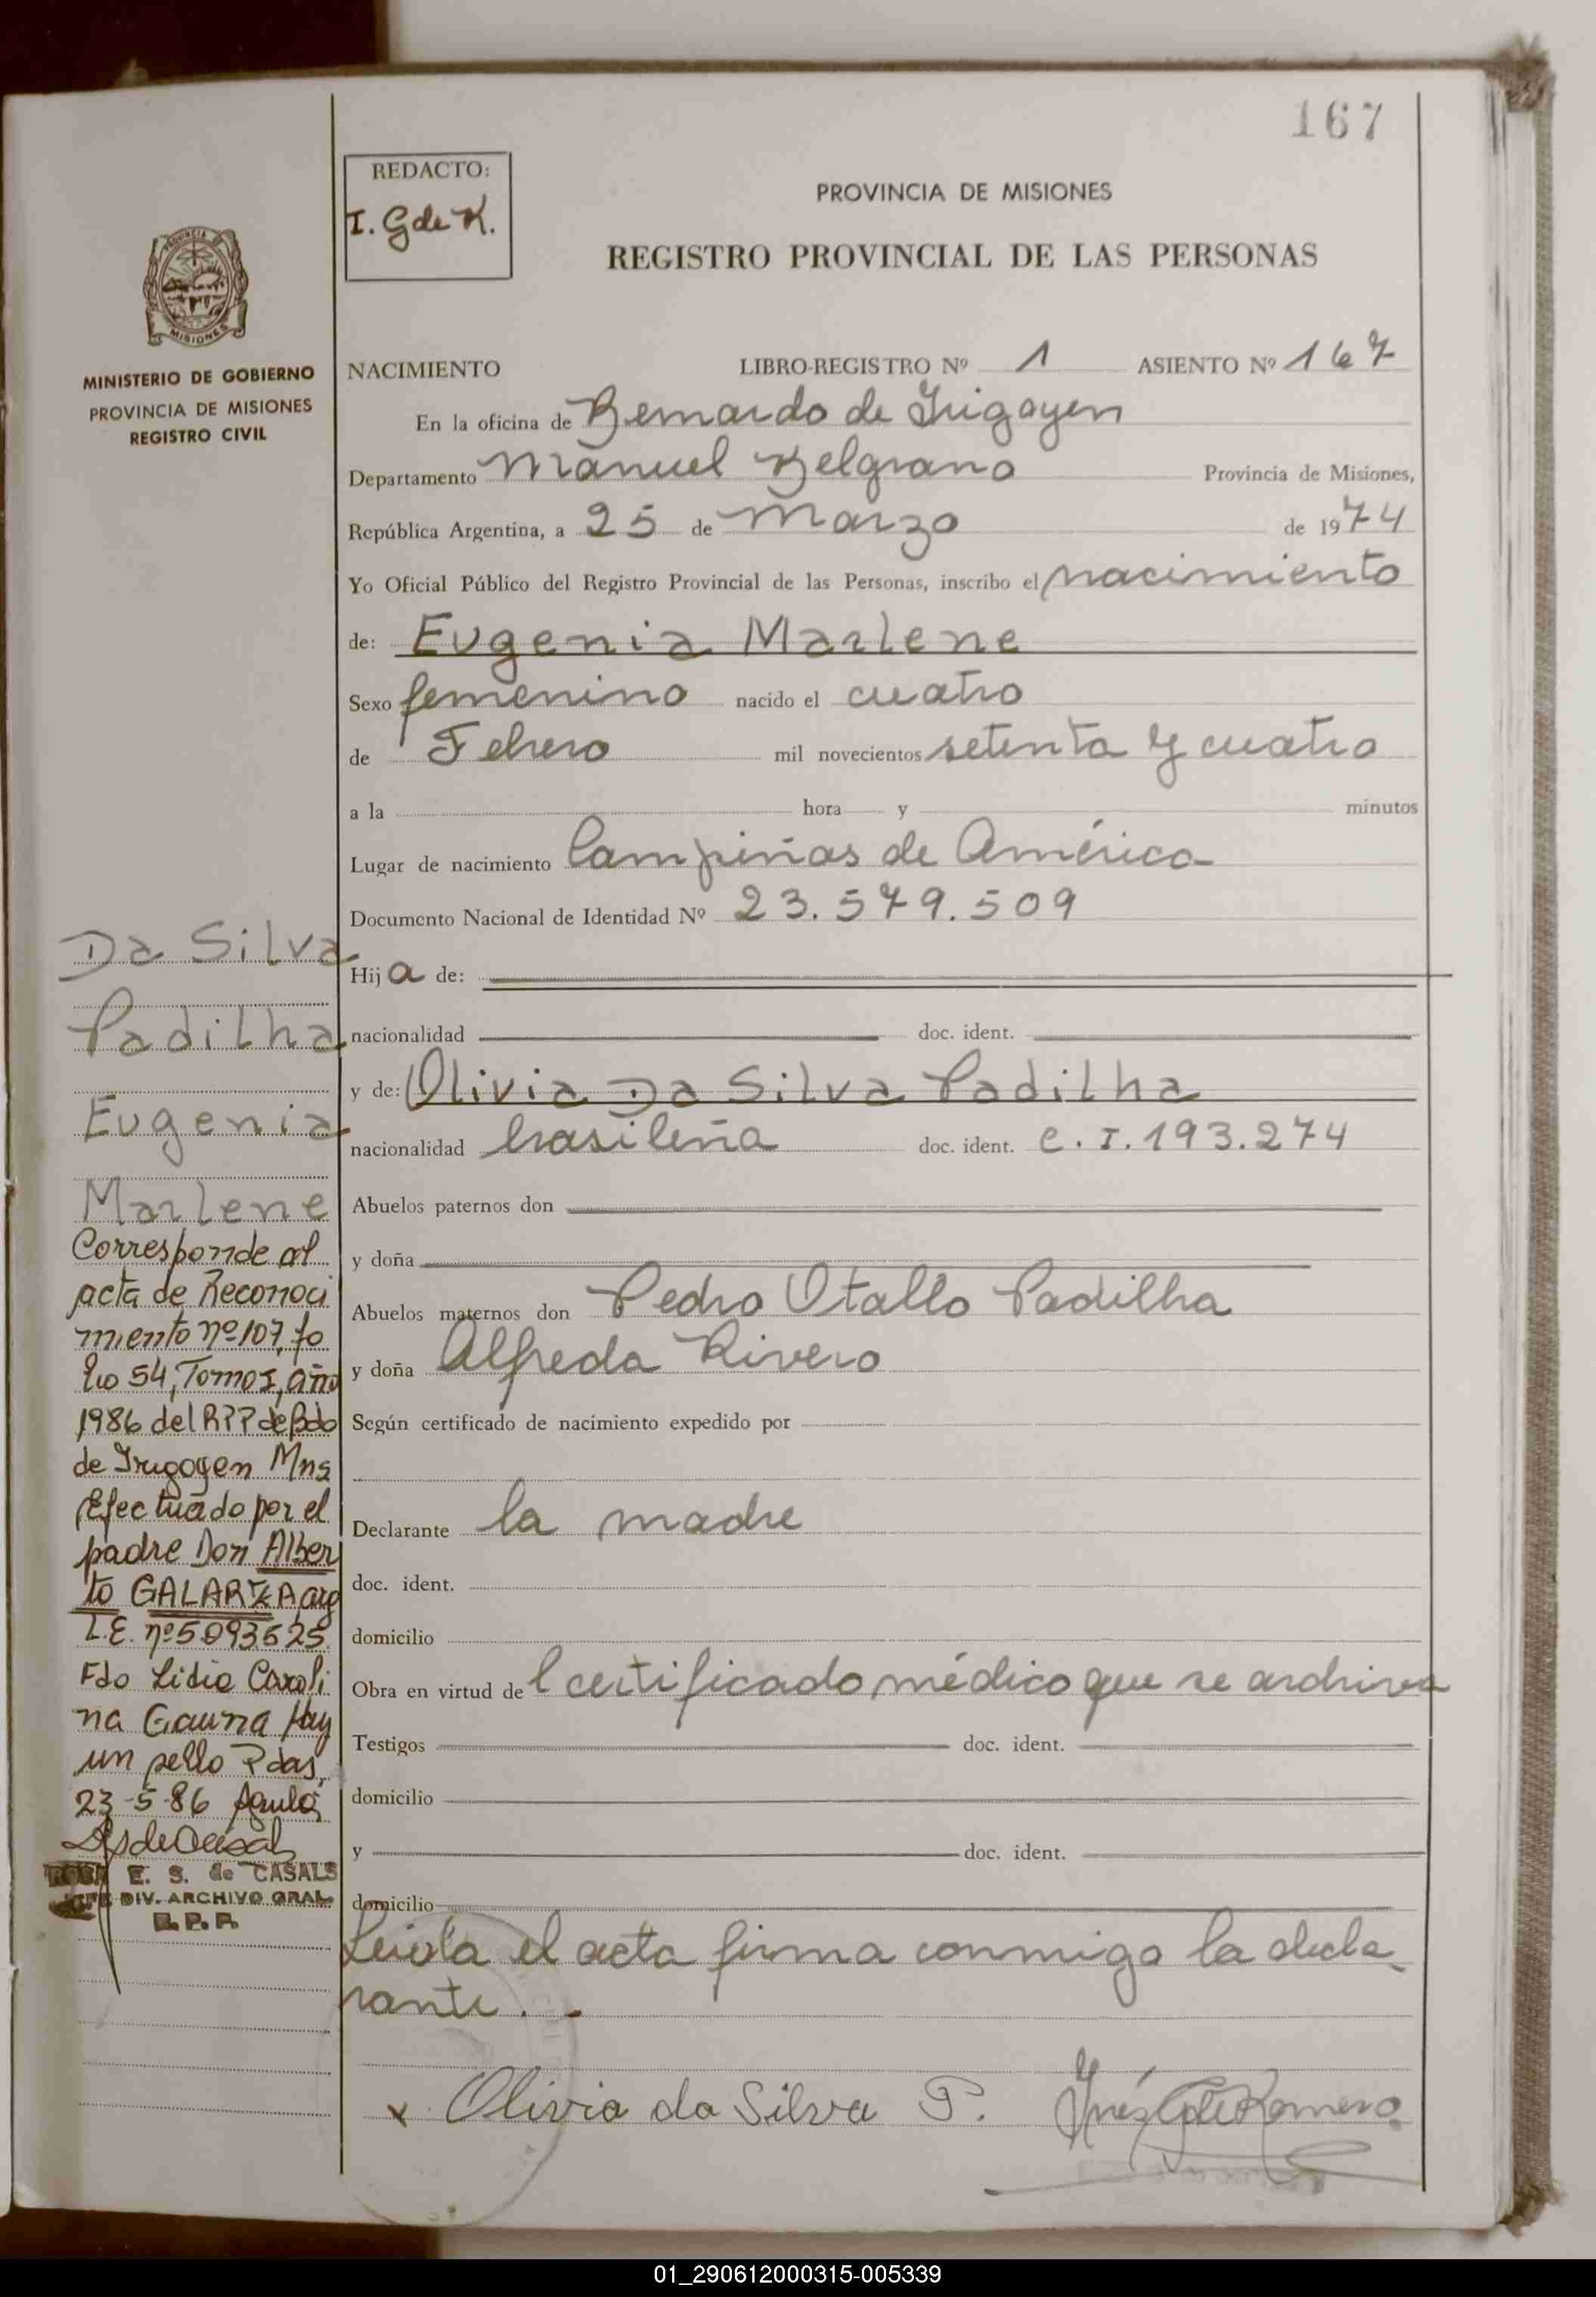 167
REDACTO:
I. G de K.
PROVINCIA DE MISIONES
REGISTRO PROVINCIAL DE LAS PERSONAS
MISIONES
MINISTERIO DE GOBIERNO
PROVINCIA DE MISIONES
REGISTRO CIVIL
NACIMIENTO LIBRO-REGISTRO Nº 1 ASIENTO Nº 167
En la oficina de Bernardo de Irigoyen
Departamento Manuel Belgrano Provincia de Misiones,
República Argentina, a 25 de Marzo de 1974
Yo Oficial Público del Registro Provincial de las Personas, inscribo el nacimiento
de: Eugenia Marlene
Sexo femenino nacido el cuatro
de Febrero mil novecientos setenta y cuatro
a la hora y minutos
Lugar de nacimiento Campiñas de América
Documento Nacional de Identidad Nº 23.579.509
Hija de:
nacionalidad doc. ident.
y de: Olivia Da Silva Padilha
nacionalidad brasileña doc. ident. C.I.193.274
Abuelos paternos don
y doña
Abuelos maternos don Pedro Otallo Padilha
y doña Alfreda Rivero
Según certificado de nacimiento expedido por
Declarante la madre
doc. ident.
domicilio
Obra en virtud del certificado médico que se archiva
Testigos doc. ident.
domicilio
y doc. ident.
domicilio
Leida el acta firma conmigo la decla-
rante.-
x Olivia da Silva P.
Da Silva
Padilha
Eugenia
Marlene
Corresponde al
acta de Reconoci
miento nº 107, fo
lio 54, Tomo I, año
1986 del RPP de Bdo
de Irigoyen Mns
Efectuado por el
padre Don Alber
to GALARZA arg
L.E. nº 5093525
Fdo Lidia Caroli
na Gauna Hay
un sello Pdas,
23-5-86
E. S. de CASALS
JEFE DIV. ARCHIVO GRAL.
R.P.P.
01_290612000315-005339